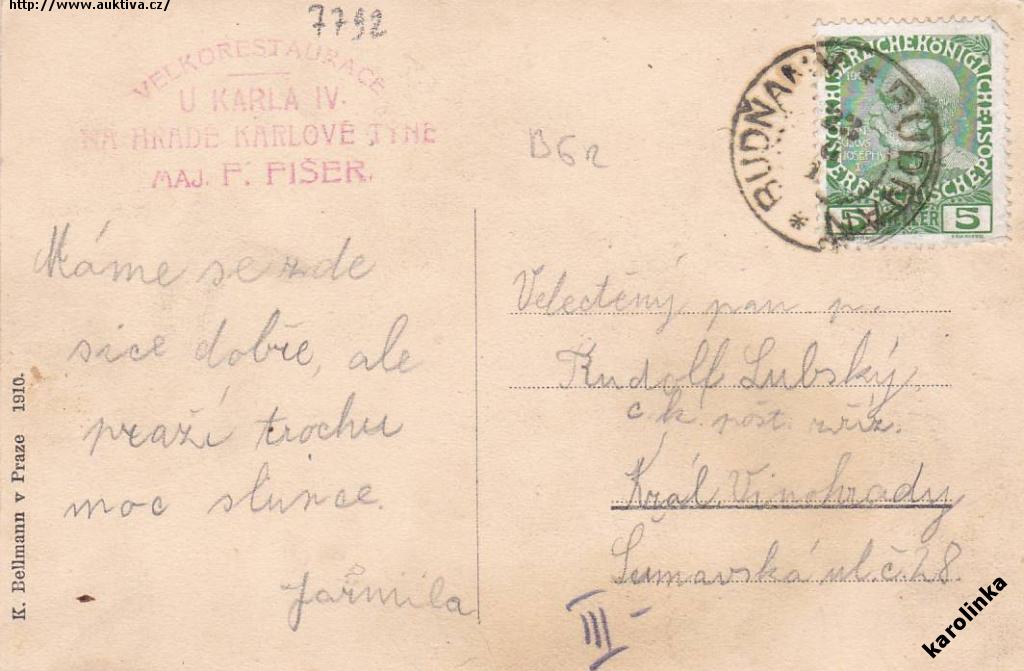 http://www.auktiva.cz/
7792
VELKORESTAURACE
U KARLA IV.
NA HRADĚ KARLOVĚ TÝNĚ
MAJ. F. FIŠER.
B6r
BUDŇANY * BUDNIAN *
KAISERLICHEKÖNIGLICHE
5 HELLER 5
Máme se zde
sice dobře, ale
praží trochu
moc slunce.
Jarmila
Velectěný pan p.
Rudolf Lubský,
c. k. pošt. zříz.
Král. Vinohrady
Šumavská ul. č. 28.
III
K. Bellmann v Praze 1910.
karolinka